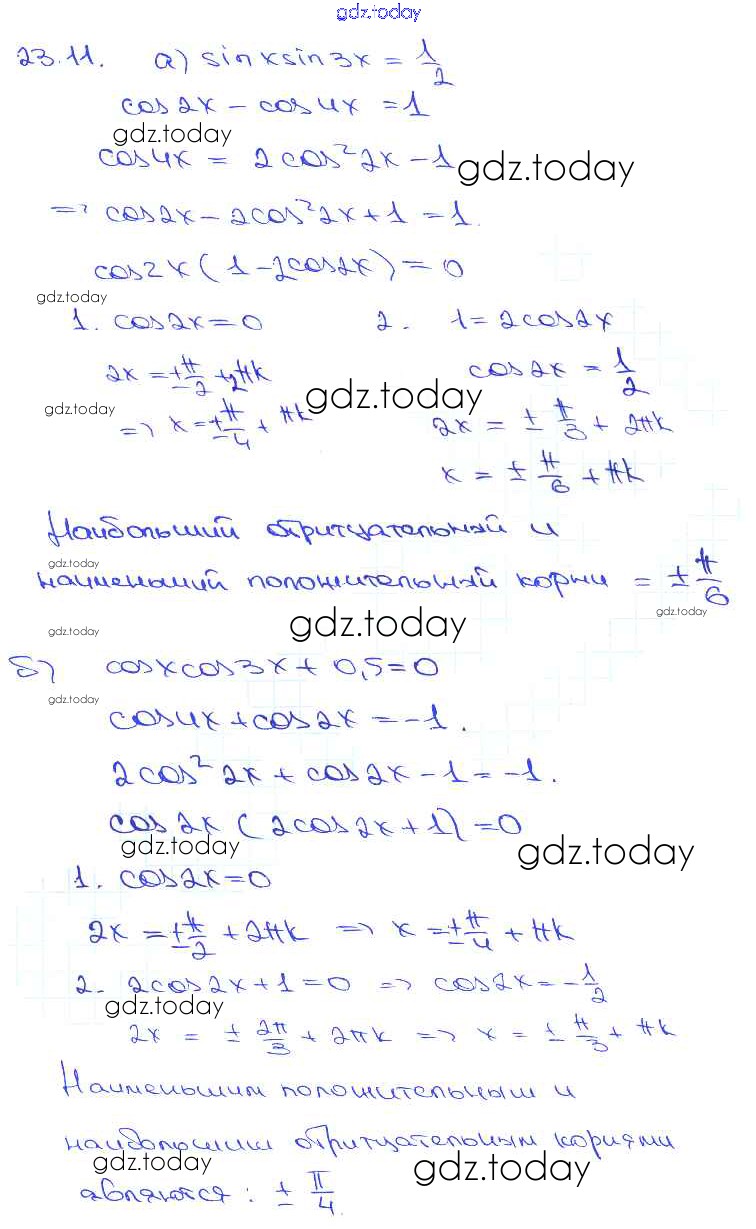 gdz.today
23.11. а) sinxsin3x = 1/2
cos2x - cos4x = 1
gdz.today
cos4x = 2cos²2x - 1
gdz.today
=> cos2x - 2cos²2x + 1 = 1.
cos2x(1 - 2cos2x) = 0
gdz.today
1. cos2x = 0 2. 1 = 2cos2x
2x = ± π/2 + 2πk cos2x = 1/2
gdz.today gdz.today
=> x = ± π/4 + πk 2x = ± π/3 + 2πk
x = ± π/6 + πk
Наибольший отрицательный и
gdz.today
наименьший положительный корни = ± π/6
gdz.today
gdz.today gdz.today
б) cosxcos3x + 0,5 = 0
gdz.today
cos4x + cos2x = -1.
2cos²2x + cos2x - 1 = -1.
cos2x (2cos2x + 1) = 0
gdz.today gdz.today
1. cos2x = 0
2x = ± π/2 + 2πk => x = ± π/4 + πk
2. 2cos2x + 1 = 0 => cos2x = - 1/2
gdz.today
2x = ± 2π/3 + 2πk => x = ± π/3 + πk
Наименьшим положительным и
наибольшим отрицательным корнями
gdz.today gdz.today
являются: ± π/4.